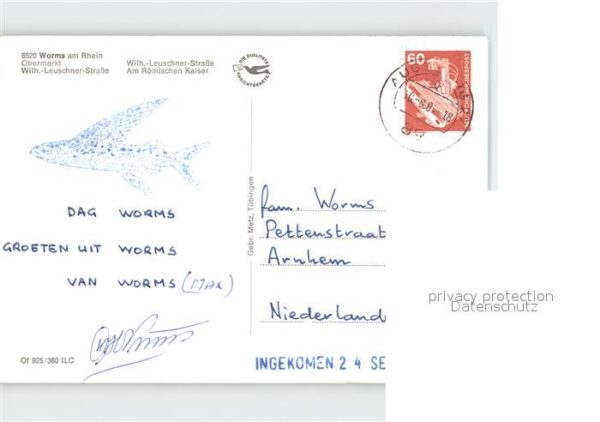 6520 Worms am Rhein
Obermarkt Wilh.-Leuschner-Straße
Wilh.-Leuschner-Straße Am Römischen Kaiser
60
DAG WORMS
GROETEN UIT WORMS
VAN WORMS (MAX)
Of 925/360 ILC
Gebr. Metz, Tübingen
fam. Worms
Pettenstraat
Arnhem
Niederland
INGEKOMEN 24 SE
privacy protection
Datenschutz